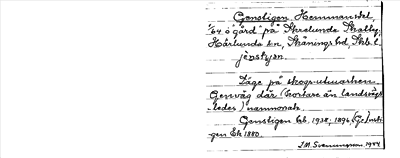 Genstigen Hemmansdel,
1/64 ö "gård" på Skrelunda Skattegy,
Härlunda sn, Skånings hd, Skb. l.
jenstijen.
Läge på skogsutmarken.
Genväg där (kortare än landsvägs-
ledes) namnorsak.
Genstigen kb. 1938, 1896 (Ge)nsti-
gen Ek 1880.
J.M. Svenungsson 1944